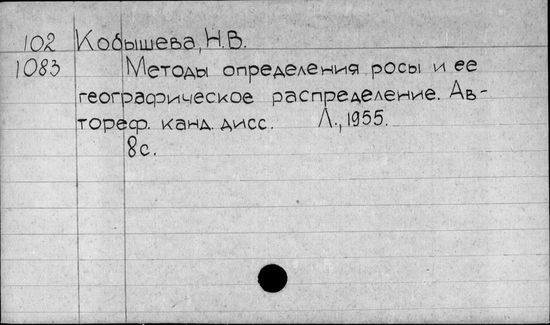 102 Кобышева, Н.В.
1083 Методы определения росы и ее
географическое распределение. Ав-
тореф. канд. дисс. Л., 1955.
8с.